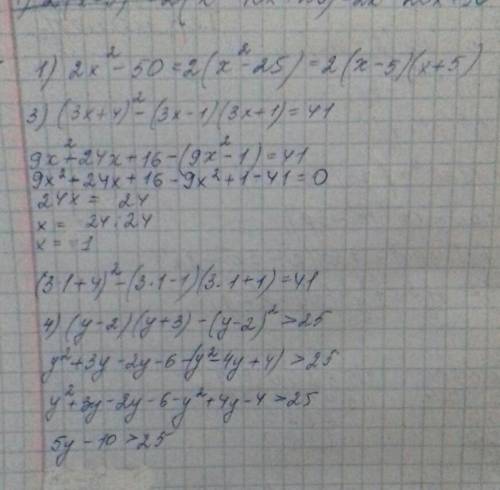 1) 2x² - 50 = 2(x² - 25) = 2(x-5)(x+5)
3) (3x+4)² - (3x-1)(3x+1) = 41
9x² + 24x + 16 - (9x² - 1) = 41
9x² + 24x + 16 - 9x² + 1 - 41 = 0
24x = 24
x = 24:24
x = 1
(3·1+4)² - (3·1-1)(3·1+1) = 41
4) (y-2)(y+3) - (y-2)² > 25
y² + 3y - 2y - 6 - (y² - 4y + 4) > 25
y² + 3y - 2y - 6 - y² + 4y - 4 > 25
5y - 10 > 25